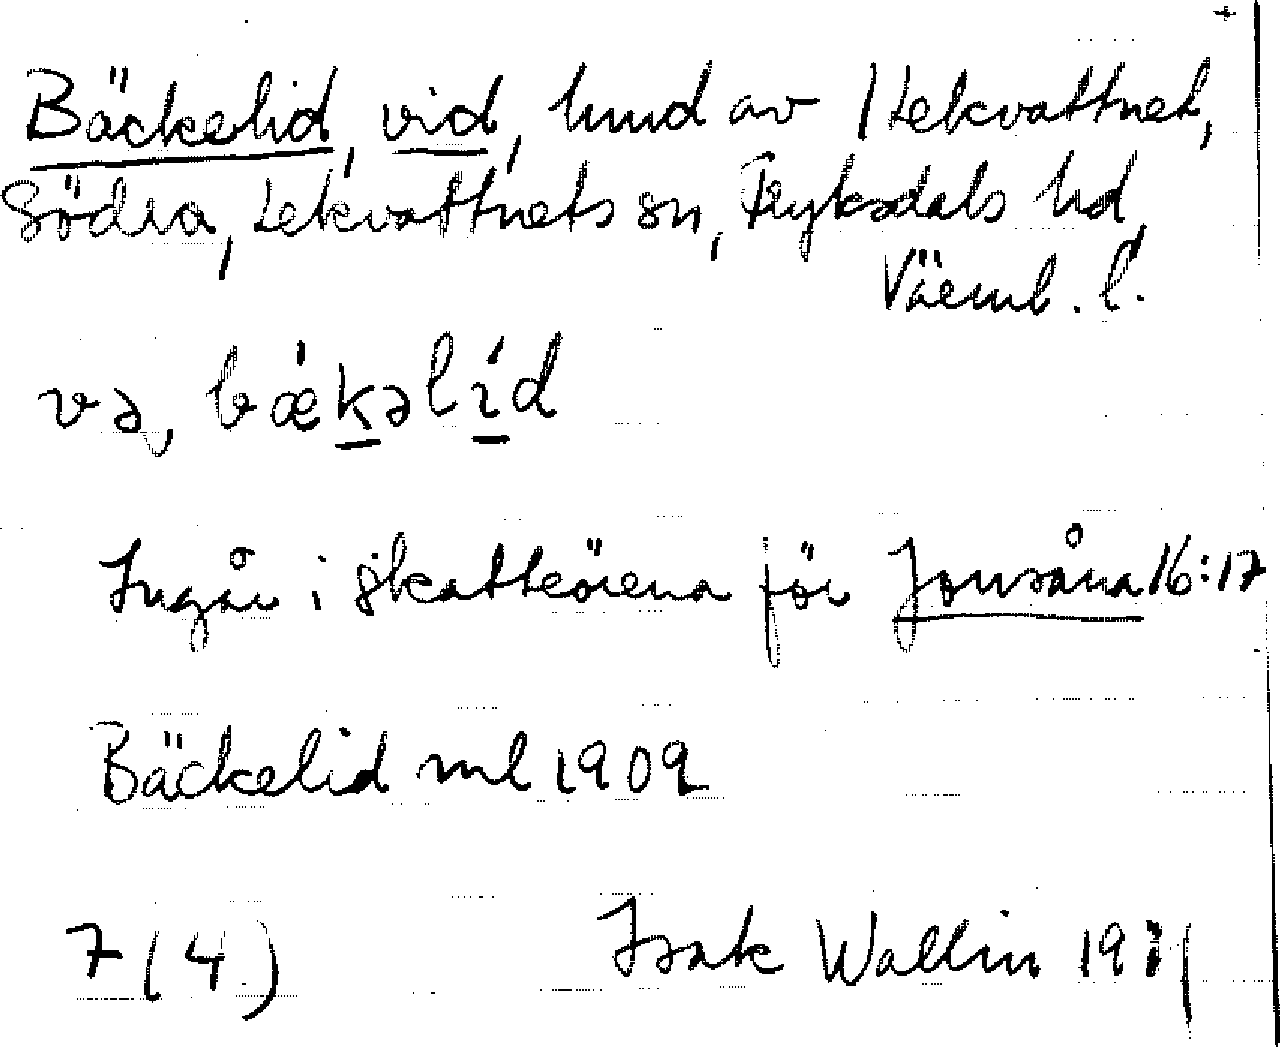 Bäckelid, vid, hmd av 1 Lekvattnet,
Södra, Lekvattnets sn, Fryksdals hd,
Värml. l.
və, bækəlid
Ingår i skatteörena för Jonsåna 16:17
Bäckelid ml 1909
7 (4)
Isak Wallin 19